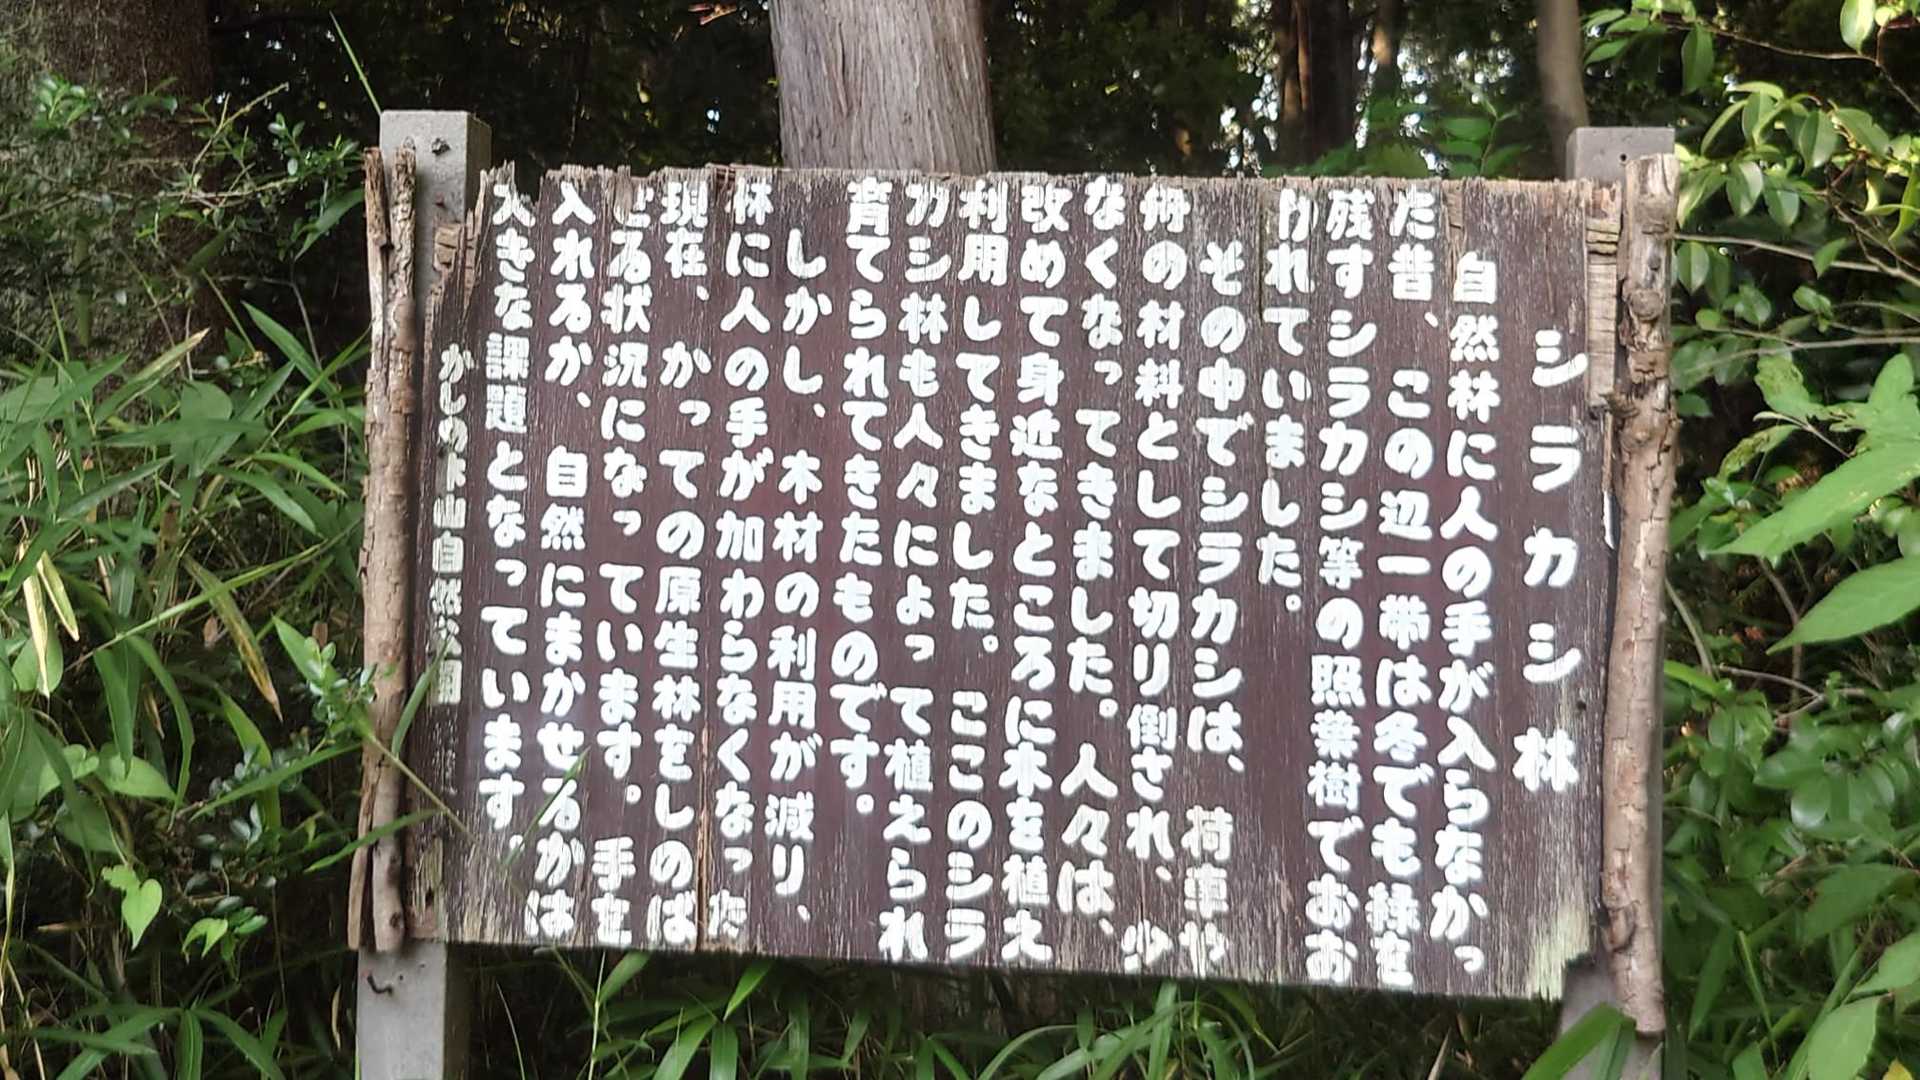 シラカシ林
自然林に人の手が入らなかっ
た昔、この辺一帯は冬でも緑を
残すシラカシ等の照葉樹でおお
われていました。
その中でシラカシは、荷車や
舟の材料として切り倒され、少
なくなってきました。人々は、
改めて身近なところに木を植え
利用してきました。ここのシラ
カシ林も人々によって植えられ
育てられてきたものです。
しかし、木材の利用が減り、
林に人の手が加わらなくなった
現在、かっての原生林をしのば
せる状況になっています。手を
入れるか、自然にまかせるかは
大きな課題となっています。
かしの木山自然公園